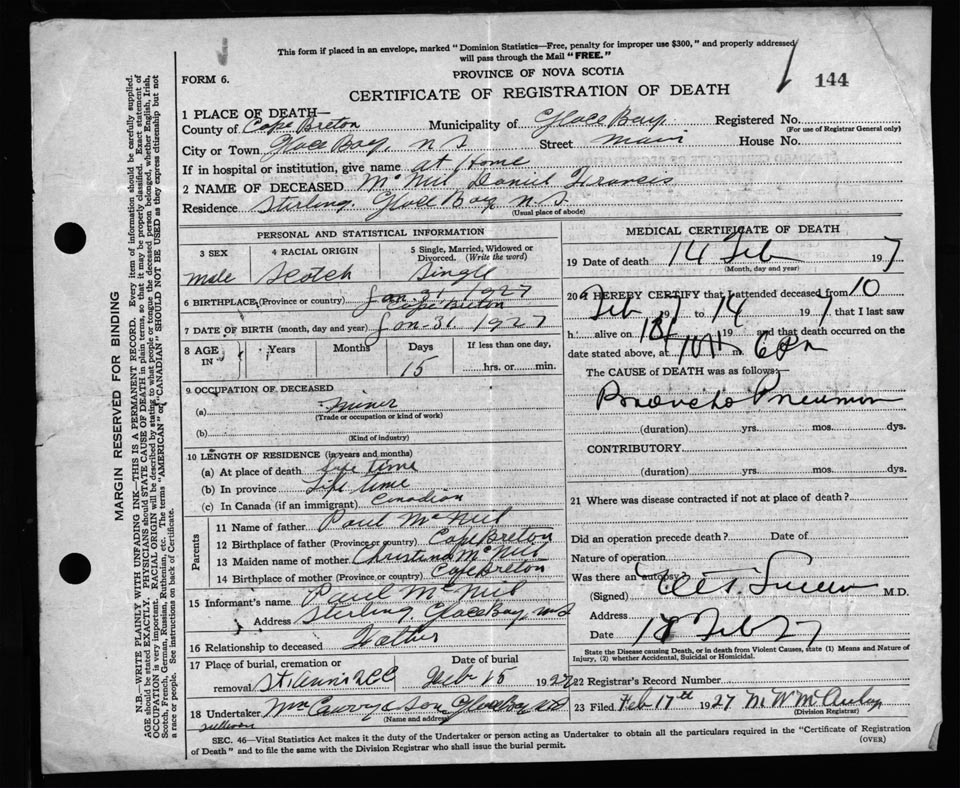 This form if placed in an envelope, marked "Dominion Statistics—Free, penalty for improper use $300," and properly addressed
will pass through the Mail "FREE."
FORM 6.
PROVINCE OF NOVA SCOTIA
144
CERTIFICATE OF REGISTRATION OF DEATH
1 PLACE OF DEATH—
County of Cape Breton Municipality of Glace Bay Registered No.
(For use of Registrar General only)
City or Town Glace Bay, N S Street Main House No.
If in hospital or institution, give name at Home
2 NAME OF DECEASED McNeil Daniel Francis
Residence Sterling. Glace Bay N.S.
(Usual place of abode)
PERSONAL AND STATISTICAL INFORMATION
3 SEX 4 RACIAL ORIGIN 5 Single, Married, Widowed or Divorced. (Write the word)
Male Scotch Single
6 BIRTHPLACE (Province or country) Jan. 31 1927
Cape Breton
7 DATE OF BIRTH (month, day and year) Jan-31-1927
8 AGE IN Years Months Days If less than one day,
15 hrs. or min.
9 OCCUPATION OF DECEASED
(a) Miner
(Trade or occupation or kind of work)
(b)
(Kind of industry)
10 LENGTH OF RESIDENCE (in years and months)
(a) At place of death Life time
(b) In province Life time
(c) In Canada (if an immigrant) Canadian
Parents
11 Name of father Paul McNeil
12 Birthplace of father (Province or country) Cape Breton
13 Maiden name of mother Christina McNeil
14 Birthplace of mother (Province or country) Cape Breton
15 Informant's name Paul McNeil
Address Sterling Glace Bay, N S
16 Relationship to deceased Father
17 Place of burial, cremation or removal St Ann's RCC
Date of burial Feb 15 1927
18 Undertaker McCurry & Son Glace Bay NS
(Name and address)
MEDICAL CERTIFICATE OF DEATH
19 Date of death 14 Feb 1927
(Month, day and year)
20 I HEREBY CERTIFY that I attended deceased from 10
Feb 19 to 14 1927, that I last saw
h alive on 19 and that death occurred on the
date stated above, at m. 6 Pm
The CAUSE of DEATH was as follows:—
Broncho Pneumon
(duration) yrs. mos. dys.
CONTRIBUTORY
(duration) yrs. mos. dys.
21 Where was disease contracted if not at place of death?
Did an operation precede death? Date of
Nature of operation
Was there an autopsy
(Signed) M.D.
Address
Date Feb 27
State the Disease causing Death, or in death from Violent Causes, state (1) Means and Nature of
Injury, (2) whether Accidental, Suicidal or Homicidal.
22 Registrar's Record Number
23 Filed Feb 17th 1927 M W McAulay
(Division Registrar)
SEC. 46—Vital Statistics Act makes it the duty of the Undertaker or person acting as Undertaker to obtain all the particulars required in the "Certificate of Registration
of Death" and to file the same with the Division Registrar who shall issue the burial permit.
(OVER)
MARGIN RESERVED FOR BINDING
N.B.—WRITE PLAINLY WITH UNFADING INK—THIS IS A PERMANENT RECORD. Every item of information should be carefully supplied.
AGE should be stated EXACTLY. PHYSICIANS should STATE CAUSE OF DEATH in plain terms, so that it may be properly classified. Exact statement of
OCCUPATION is very important. RACIAL ORIGIN will be described by stating to what people or tongue the deceased person belonged, whether English, Irish,
Scotch, French, German, Russian, Ruthenian, etc. The terms "AMERICAN" or "CANADIAN" SHOULD NOT BE USED as they express citizenship but not
a race or people. See instructions on back of Certificate.